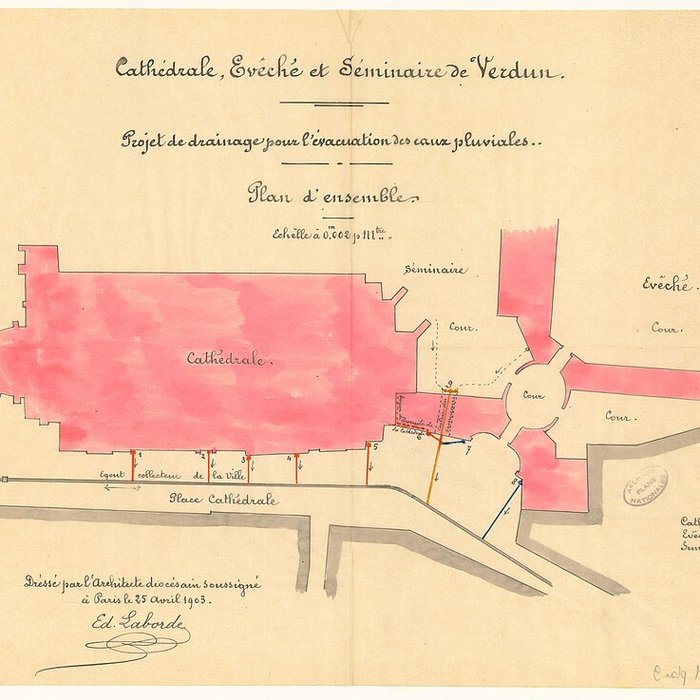 Cathédrale, Evêché et Séminaire de Verdun.
Projet de drainage pour l'évacuation des eaux pluviales..
Plan d'ensemble.
Echelle à 0.m002 p Mtre..
Séminaire
Evêché.
Cour.
Cour.
Cathédrale.
Cour
Cour.
la Cathédrale
1
2
3
4
5
6
7
8
9
Egout collecteur de la Ville
Place Cathédrale
ARCH
PLANS
NATIONALES
Dressé par l'Architecte diocésain soussigné
à Paris le 25 Avril 1903.
Ed. Laborde